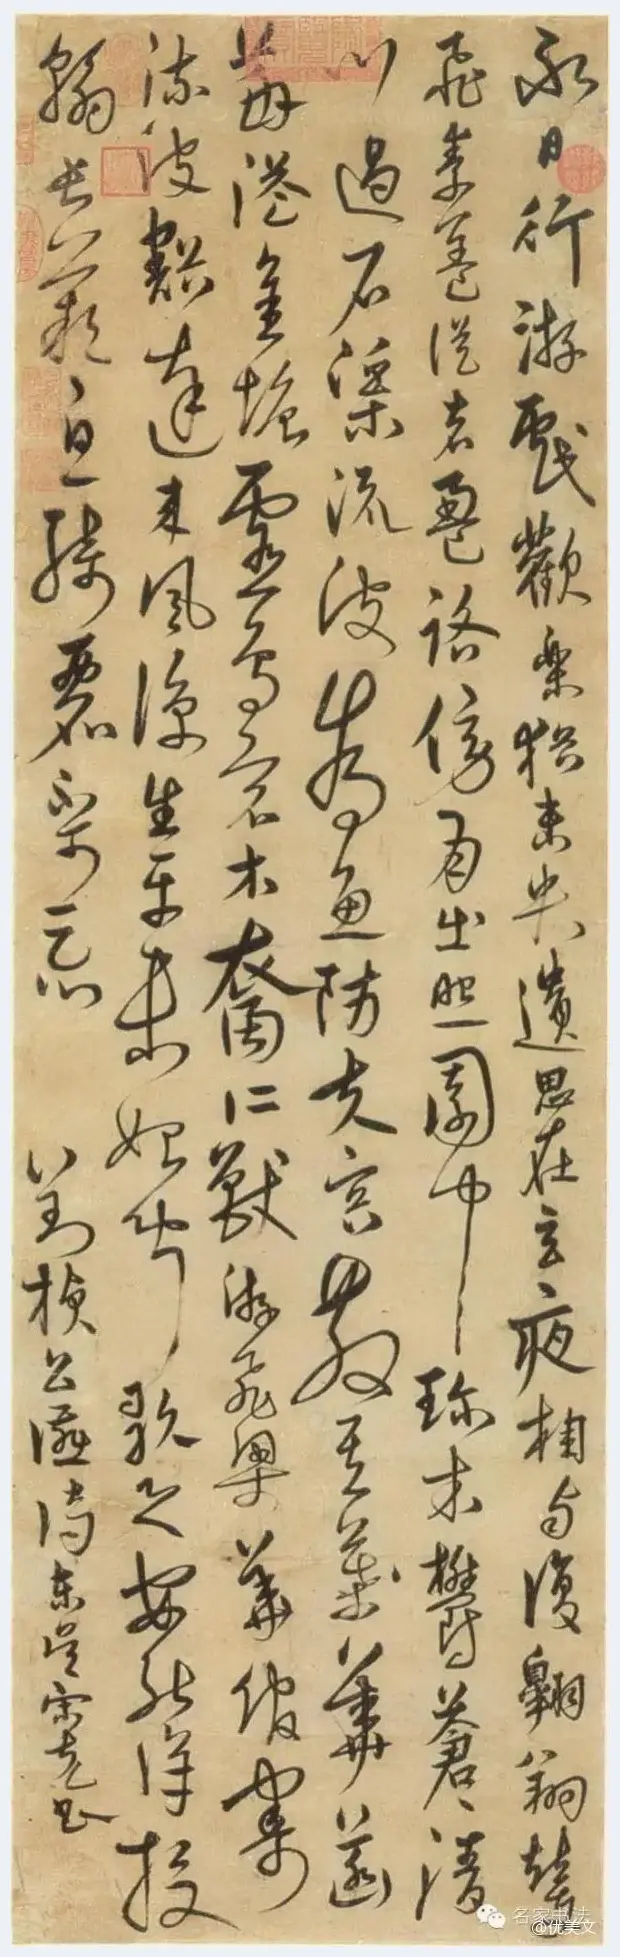 永日行游戲歡樂猶未央遺思在玄夜相與復翱翔輦車
飛素蓋從者盈路傍月出照園中珎木鬱蒼〻清
川過石渠流波為魚防夫容散其華菡
萏溢金塘靈鳥宿水裔仁獸游飛梁華館寄
流波豁達来風涼生平未始聞歌之安能詳投
翰長歎息綺麗不可忘
劉楨公讌詩東吳宋克書
名家书法
@优美文